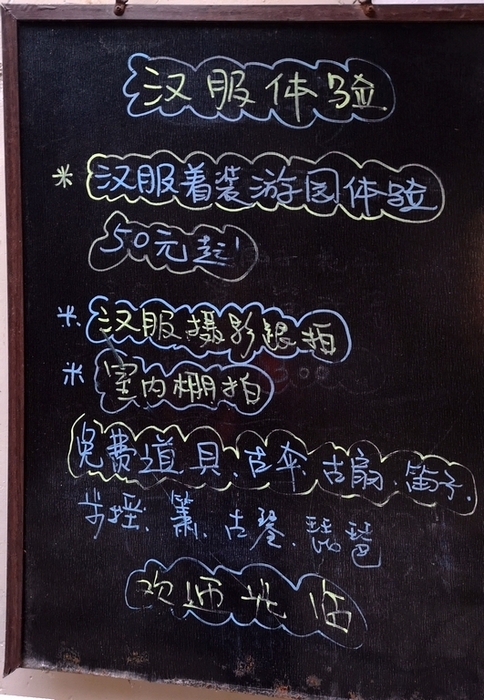 汉服体验
* 汉服着装游园体验
50元起!
* 汉服摄影跟拍
* 室内棚拍
免费道具、古伞、古扇、笛子、
步摇、箫、古琴、琵琶
欢迎光临